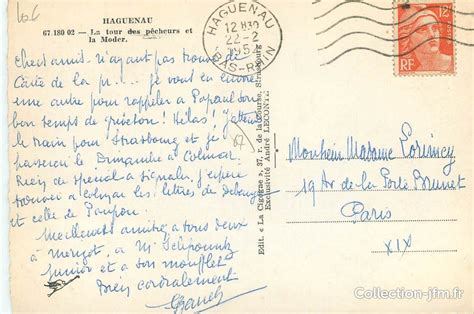 HAGUENAU
67.180 02 — La tour des pêcheurs et
la Moder.
Chers amis. N'ayant pas trouvé de
Carte de la p... je vous en envoie
une autre pour rappeler à Popaul son
bon temps de griveton! Hélas! J'attends
le train pour Strasbourg et je
passerai le Dimanche à Colmar.
Rien de spécial à signaler. J'espère
trouver à Colmar les lettres de
et celle de Poupon.
Meilleures amitiés à tous deux
à à Mr
junior et à son
Bien cordialement
Edit. « La Cigogne », 37, r. de la Course, Strasbourg
Exclusivité André LECONTE
HAGUENAU
12 H30
22-2
BAS-RHIN
12F
RF
Monsieur Madame
19 Av de la Porte Brunet
Paris
XIX
Collection-jfm.fr